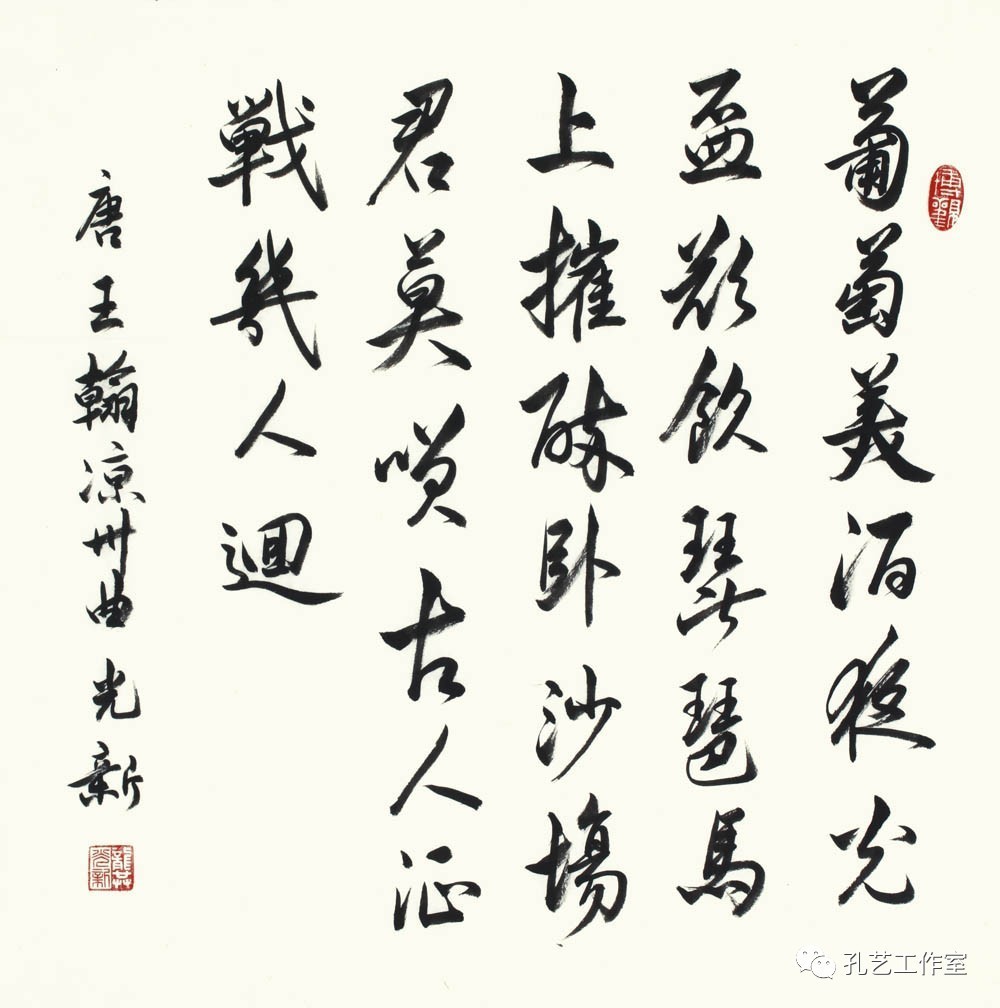 葡萄美酒夜光
盃欲飲琵琶馬
上摧醉卧沙場
君莫咲古人征
戰幾人迴
唐王翰涼州曲光新
龔光新
孔艺工作室